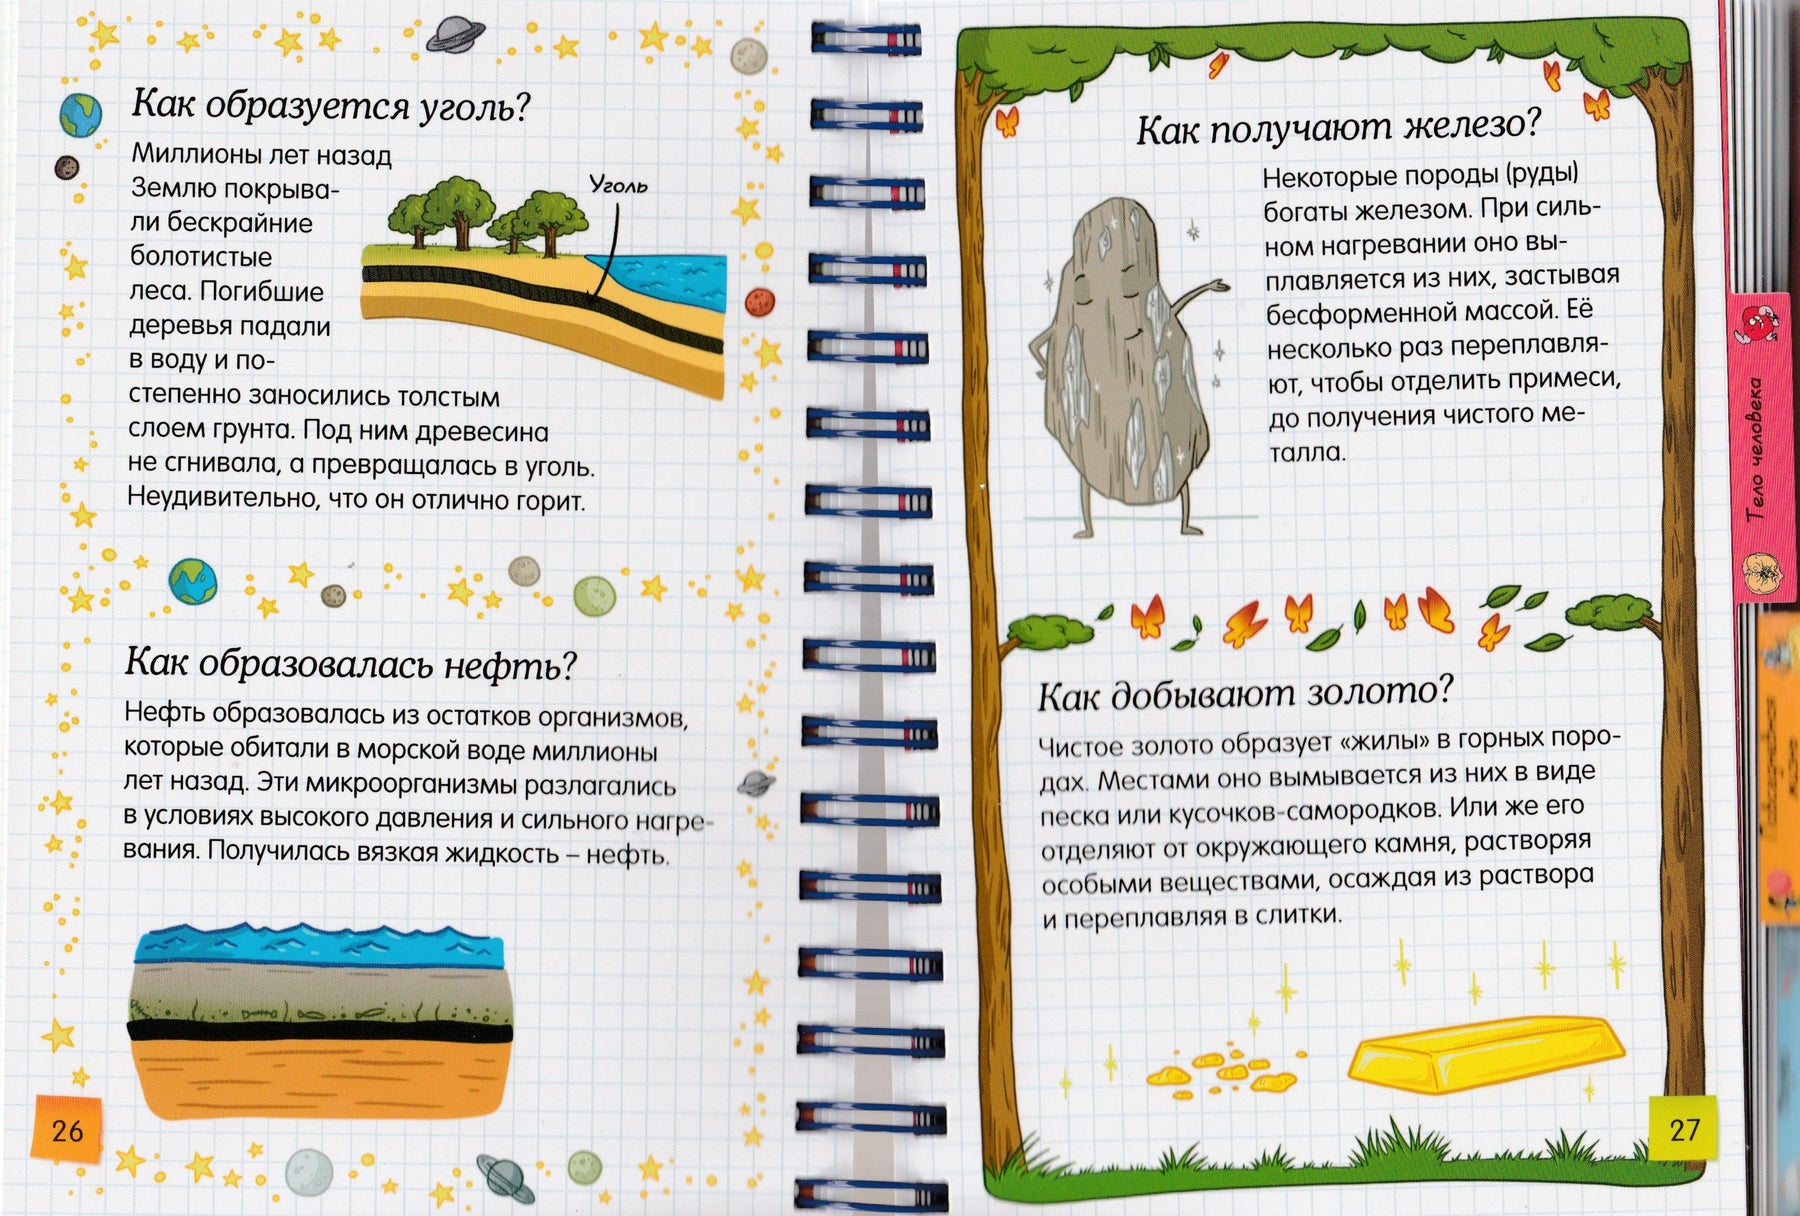 Как образуется уголь?
Миллионы лет назад
Землю покрыва-
ли бескрайние
болотистые
леса. Погибшие
деревья падали
в воду и по-
степенно заносились толстым
слоем грунта. Под ним древесина
не сгнивала, а превращалась в уголь.
Неудивительно, что он отлично горит.
Уголь
Как образовалась нефть?
Нефть образовалась из остатков организмов,
которые обитали в морской воде миллионы
лет назад. Эти микроорганизмы разлагались
в условиях высокого давления и сильного нагре-
вания. Получилась вязкая жидкость – нефть.
26
Как получают железо?
Некоторые породы (руды)
богаты железом. При силь-
ном нагревании оно вы-
плавляется из них, застывая
бесформенной массой. Её
несколько раз переплавля-
ют, чтобы отделить примеси,
до получения чистого ме-
талла.
Как добывают золото?
Чистое золото образует «жилы» в горных поро-
дах. Местами оно вымывается из них в виде
песка или кусочков-самородков. Или же его
отделяют от окружающего камня, растворяя
особыми веществами, осаждая из раствора
и переплавляя в слитки.
27
Тело человека
Повседневная
жизнь